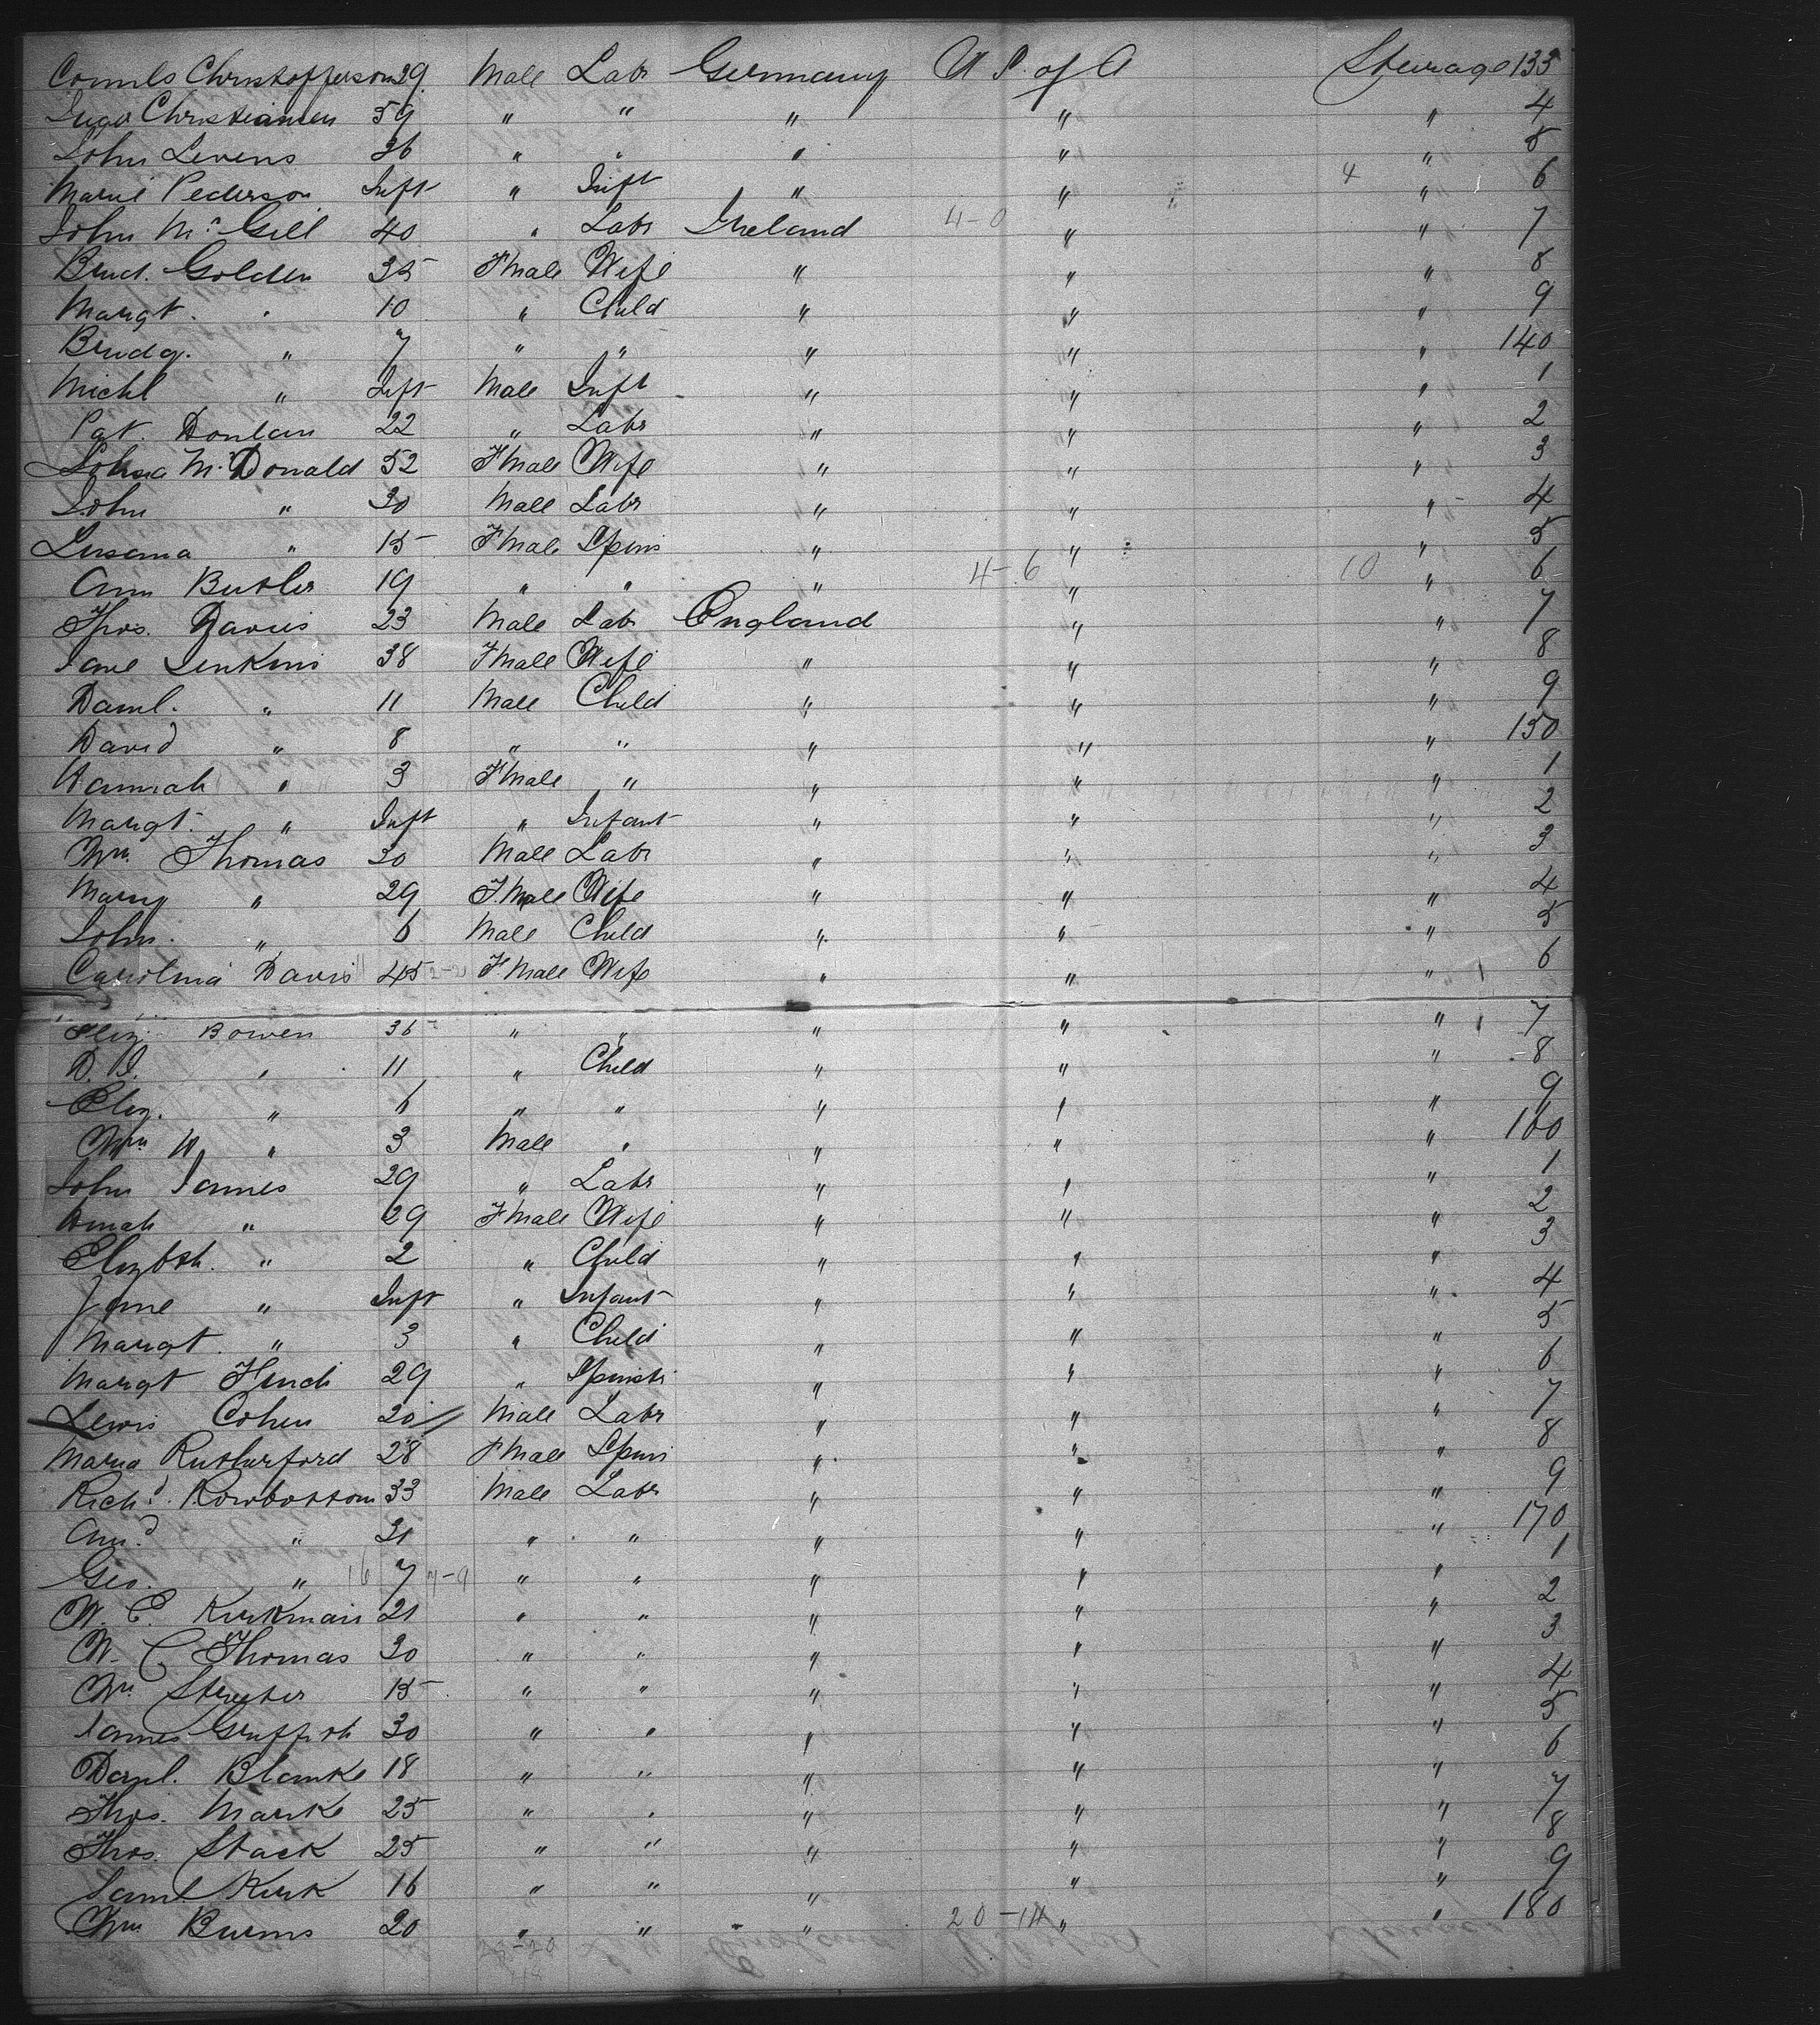 Christofferson 29 Male Labr Germany U S. of A Steerage 133
Christiansen 59 " " " " " 4
John Levens 26 " " " " " 5
Marie Pederson Inft " Inft " " 4 " 6
John Mc Gill 40 " Labr Ireland 4-0 " " 7
Brid. Golden 35 Fmale Wife " " " 8
Margt. " 10 " Child " " " 9
Bridg. " 7 " " " " " 140
Michl " Inft Male Inft " " " 1
Pat. Donlan 22 " Labr " " " 2
Mc Donald 52 Fmale Wife " " " 3
John " 30 Male Labr " " " 4
Susana " 15 Fmale Spins " " " 5
Ann Butler 19 " " " 4-6 " 10 " 6
Thos. Davies 23 Male Labr England " " 7
Jane Jenkins 38 Fmale Wife " " " 8
Danl. " 11 Male Child " " " 9
David " 8 " " " " " 150
Hannah " 3 Fmale " " " " 1
Margt. " Inft " Infant " " " 2
Wm. Thomas 30 Male Labr " " " 3
Mary " 29 F.Male Wife " " " 4
John. " 6 Male Child " " " 5
Carolina Davis 45 F.Male Wife " " " 6
Eliz. Bowen 36 " " " " " 7
D. J. " 11 " Child " " " 8
Eliz. " 6 " " " " " 9
Wm W. " 3 Male " " " " 160
John James 29 " Labr " " " 1
" 29 Fmale Wife " " " 2
Elizbth. " 2 " Child " " " 3
Jane " Inft " Infant " " " 4
Margt. " 3 " Child " " " 5
Margt 29 " Spinstr " " " 6
Lewis Cohen 20 Male Labr " " " 7
Maria Rutherford 28 Fmale Spins " " " 8
Richd. Rowbottom 33 Male Labr " " " 9
" 31 " " " " " 170
Geo. " 16 7 7-9 " " " " " 1
W. E. Kirkman 21 " " " " " 2
W. C. Thomas 30 " " " " " 3
Wm Streeter 15 " " " " " 4
James Griffith 30 " " " " " 5
Danl. Blanke 18 " " " " " 6
Thos. Manke 25 " " " " " 7
Thos. Stack 25 " " " " " 8
Saml. Kirk 16 " " " " " 9
Wm Burns 20 " " " 20-14 " " 180